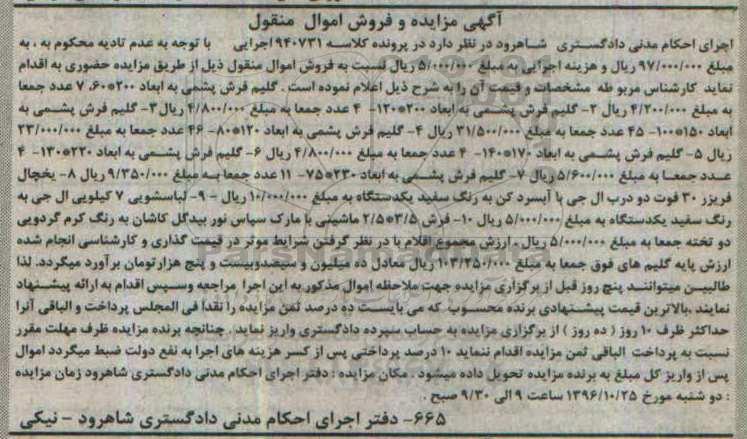 آگهی مزایده و فروش اموال منقول
اجرای احکام مدنی دادگستری شاهرود در نظر دارد در پرونده کلاسه ۹۴۰۷۳۱ اجرایی با توجه به عدم تادیه محکوم به ، به
مبلغ ۹۷/۰۰۰/۰۰۰ ریال و هزینه اجرایی به مبلغ ۵/۰۰۰/۰۰۰ ریال نسبت به فروش اموال منقول ذیل از طریق مزایده حضوری به اقدام
نماید کارشناس مربوطه مشخصات و قیمت آن را به شرح ذیل اعلام نموده است . گلیم فرش پشمی به ابعاد ۲۰۰*۶۰، ۷ عدد جمعا
به مبلغ ۴/۲۰۰/۰۰۰ ریال ۲- گلیم فرش پشمی به ابعاد ۲۰۰*۱۲۰- ۴ عدد جمعا به مبلغ ۴/۸۰۰/۰۰۰ ریال ۳- گلیم فرش پشمی به
ابعاد ۱۵۰*۱۰۰- ۴۵ عدد جمعا به مبلغ ۳۱/۵۰۰/۰۰۰ ریال ۴- گلیم فرش پشمی به ابعاد ۱۲۰*۸۰- ۴۶ عدد جمعا به مبلغ ۲۳/۰۰۰/۰۰۰
ریال ۵- گلیم فرش پشمی به ابعاد ۱۷۰*۱۴۰- ۴ عدد جمعا به مبلغ ۴/۸۰۰/۰۰۰ ریال ۶- گلیم فرش پشمی به ابعاد ۲۲۰*۱۳۰- ۴
عدد جمعا به مبلغ ۵/۶۰۰/۰۰۰ ریال ۷- گلیم فرش پشمی به ابعاد ۲۳۰*۷۵- ۱۱ عدد جمعا به مبلغ ۹/۳۵۰/۰۰۰ ریال ۸- یخچال
فریزر ۳۰ فوت دو درب ال جی با آبسرد کن به رنگ سفید یکدستگاه به مبلغ ۱۰/۰۰۰/۰۰۰ ریال - ۹- لباسشویی ۷ کیلویی ال جی به
رنگ سفید یکدستگاه به مبلغ ۵/۰۰۰/۰۰۰ ریال ۱۰- فرش ۳/۵*۲/۵ ماشینی با مارک سپاس نور بیدگل کاشان به رنگ کرم گردویی
دو تخته جمعا به مبلغ ۵/۰۰۰/۰۰۰ ریال . ارزش مجموع اقلام با در نظر گرفتن شرایط موثر در قیمت گذاری و کارشناسی انجام شده
ارزش پایه گلیم های فوق جمعا به مبلغ ۱۰۳/۲۵۰/۰۰۰ ریال معادل ده میلیون و سیصدوبیست و پنج هزارتومان برآورد میگردد، لذا
طالبین میتوانند پنج روز قبل از برگزاری مزایده جهت ملاحظه اموال مذکور به این اجرا مراجعه وسپس اقدام به ارائه پیشنهاد
نمایند ،بالاترین قیمت پیشنهادی برنده محسوب که می بایست ده درصد ثمن مزایده را نقدا فی المجلس پرداخت و الباقی آنرا
حداکثر ظرف ۱۰ روز ( ده روز ) از برگزاری مزایده به حساب سپرده دادگستری واریز نماید . چنانچه برنده مزایده ظرف مهلت مقرر
نسبت به پرداخت الباقی ثمن مزایده اقدام ننماید ۱۰ درصد پرداختی پس از کسر هزینه های اجرا به نفع دولت ضبط میگردد اموال
پس از واریز کل مبلغ به برنده مزایده تحویل داده میشود . مکان مزایده : دفتر اجرای احکام مدنی دادگستری شاهرود زمان مزایده
: دو شنبه مورخ ۱۳۹۶/۱۰/۲۵ ساعت ۹ الی ۹/۳۰ صبح .
۶۶۵- دفتر اجرای احکام مدنی دادگستری شاهرود - نیکی